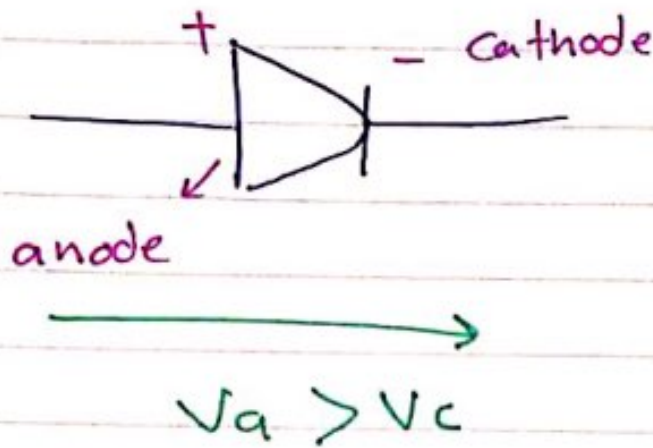 +
- Cathode
anode
Va > Vc